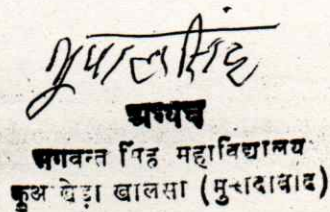 भूपालसिंह
अध्यक्ष
भगवन्त सिंह महाविद्यालय
कुअ खेड़ा खालसा (मुरादाबाद)